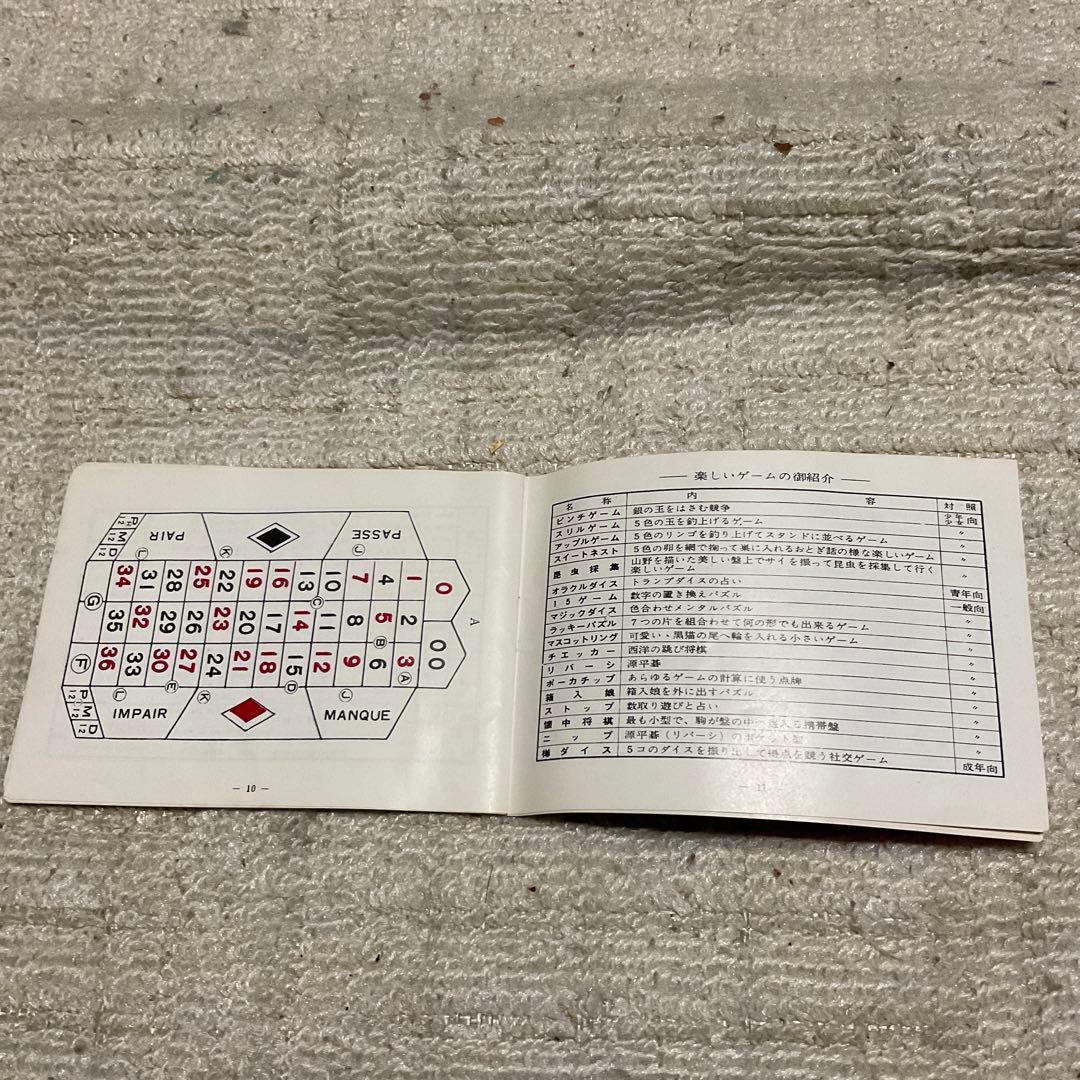 PAIR
PASSE
P 12 M 12 D 12
L
K
J
34 31 28 25 22 19 16 13 10 7 4 1 0
G
C
35 32 29 26 23 20 17 14 11 8 5 2 00
B
A
F
36 33 30 27 24 21 18 15 12 9 6 3
A
E
D
L
K
J
P 12 M 12 D 12
IMPAIR
MANQUE
— 10 —
—— 楽しいゲームの御紹介 ——
名 称 内 容 対 照
ピンチゲーム 銀の玉をはさむ競争 少年少女向
スリルゲーム 5色の玉を釣上げるゲーム 〃
アップルゲーム 5色のリンゴを釣り上げてスタンドに並べるゲーム 〃
スイートネスト 5色の卵を網で掬って巣に入れるおとぎ話の様な楽しいゲーム 〃
昆虫採集 山野を描いた美しい盤上でサイを振って昆虫を採集して行く楽しいゲーム 〃
オラウルダイス トランプダイスの占い 〃
15ゲーム 数字の置き換えパズル 青年向
マジックダイス 色合わせメンタルパズル 一般向
ラッキーパズル 7つの片を組合わせて何の形でも出来るゲーム 〃
マスコットリング 可愛い、黒猫の尾へ輪を入れる小さいゲーム 〃
チエッカー 西洋の跳び将棋 〃
リバーシ 源平碁 〃
ポーカチップ あらゆるゲームの計算に使う点牌 〃
箱入娘 箱入娘を外に出すパズル 〃
ストップ 数取り遊びと占い 〃
懐中将棋 最も小型で、駒が盤の中へ這入る携帯盤 〃
ニップ 源平碁（リバーシ）のポケット型 〃
樽ダイス 5コのダイスを振り出して得点を競う社交ゲーム 成年向
— 11 —